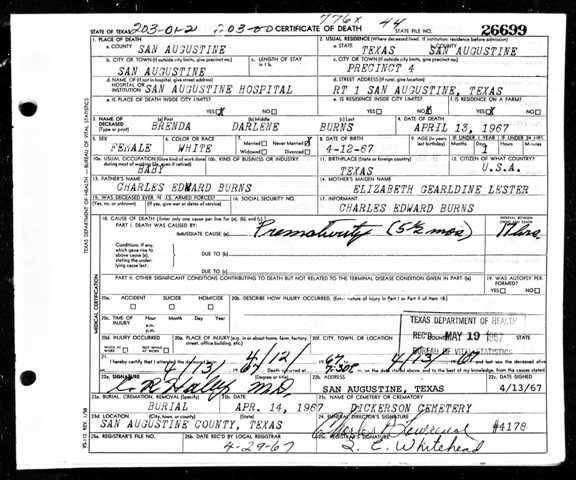 776x 44
STATE OF TEXAS 203-01-2 CERTIFICATE OF DEATH STATE FILE NO. 26699
1. PLACE OF DEATH
a. COUNTY SAN AUGUSTINE
2. USUAL RESIDENCE (Where deceased lived. If institution: residence before admission)
a. STATE TEXAS b. COUNTY SAN AUGUSTINE
b. CITY OR TOWN (If outside city limits, give precinct no.) SAN AUGUSTINE
c. LENGTH OF STAY in 1 b.
c. CITY OR TOWN (If outside city limits, give precinct no.) PRECINCT 4
d. NAME OF (If not in hospital, give street address) HOSPITAL OR INSTITUTION SAN AUGUSTINE HOSPITAL
d. STREET ADDRESS (If rural, give location) RT 1 SAN AUGUSTINE, TEXAS
e. IS PLACE OF DEATH INSIDE CITY LIMITS? YES X NO
e. IS RESIDENCE INSIDE CITY LIMITS? YES NO X
f. IS RESIDENCE ON A FARM? YES NO
3. NAME OF DECEASED (Type or print) (a) First BRENDA (b) Middle DARLENE (c) Last BURNS
4. DATE OF DEATH APRIL 13, 1967
5. SEX FEMALE
6. COLOR OR RACE WHITE
7. Married Never Married Widowed Divorced
8. DATE OF BIRTH 4-12-67
9. AGE (In years last birthday) IF UNDER 1 YEAR Months Days 1 IF UNDER 24 HRS.
10a. USUAL OCCUPATION (Give kind of work done during most of working life, even if retired) BABY
10b. KIND OF BUSINESS OR INDUSTRY
11. BIRTHPLACE (State or foreign country) TEXAS
12. CITIZEN OF WHAT COUNTRY? U.S.A.
13. FATHER'S NAME CHARLES EDWARD BURNS
14. MOTHER'S MAIDEN NAME ELIZABETH GEARLDINE LESTER
15. WAS DECEASED EVER IN U.S. ARMED FORCES? (Yes, no, or unknown) (If yes, give war or dates of service)
16. SOCIAL SECURITY NO.
17. INFORMANT CHARLES EDWARD BURNS
18. CAUSE OF DEATH [Enter only one cause per line for (a), (b), and (c).]
PART I. DEATH WAS CAUSED BY:
IMMEDIATE CAUSE (a) Prematurity (5½ mos)
INTERVAL BETWEEN ONSET AND DEATH
Conditions, if any, which gave rise to above cause (a), stating the underlying cause last.
DUE TO (b)
DUE TO (c)
PART II. OTHER SIGNIFICANT CONDITIONS CONTRIBUTING TO DEATH BUT NOT RELATED TO THE TERMINAL DISEASE CONDITION GIVEN IN PART I(a)
19. WAS AUTOPSY PERFORMED? YES NO
20a. ACCIDENT SUICIDE HOMICIDE
20b. DESCRIBE HOW INJURY OCCURRED. (Enter nature of injury in Part I or Part II of item 18.)
20c. TIME OF INJURY Hour a.m. p.m. Month Day Year
20d. INJURY OCCURRED WHILE AT WORK NOT WHILE AT WORK
20e. PLACE OF INJURY (e.g., in or about home, farm, factory, street, office building, etc.)
20f. CITY, TOWN, OR LOCATION COUNTY STATE
TEXAS DEPARTMENT OF HEALTH
REC'D MAY 19 1967
BUREAU OF VITAL STATISTICS
21. I hereby certify that I attended the deceased from 4/12/ 67 4/13 67 and last saw the deceased alive
4/13/ 67 Death occurred at 7:30P m. on the date stated above, and to the best of my knowledge, from the causes stated.
22a. SIGNATURE (Degree or title) C. R. Haley M.D.
22b. ADDRESS SAN AUGUSTINE, TEXAS
22c. DATE SIGNED 4/13/67
23a. BURIAL, CREMATION, REMOVAL (Specify) BURIAL
23b. DATE APR. 14, 1967
23c. NAME OF CEMETERY OR CREMATORY DICKERSON CEMETERY
23d. LOCATION SAN AUGUSTINE COUNTY, TEXAS
24. FUNERAL DIRECTOR'S SIGNATURE #4178
25a. REGISTRAR'S FILE NO.
25b. DATE REC'D BY LOCAL REGISTRAR 4-29-67
25c. REGISTRAR'S SIGNATURE Whitehead
TEXAS DEPARTMENT OF HEALTH — BUREAU OF VITAL STATISTICS
MEDICAL CERTIFICATION